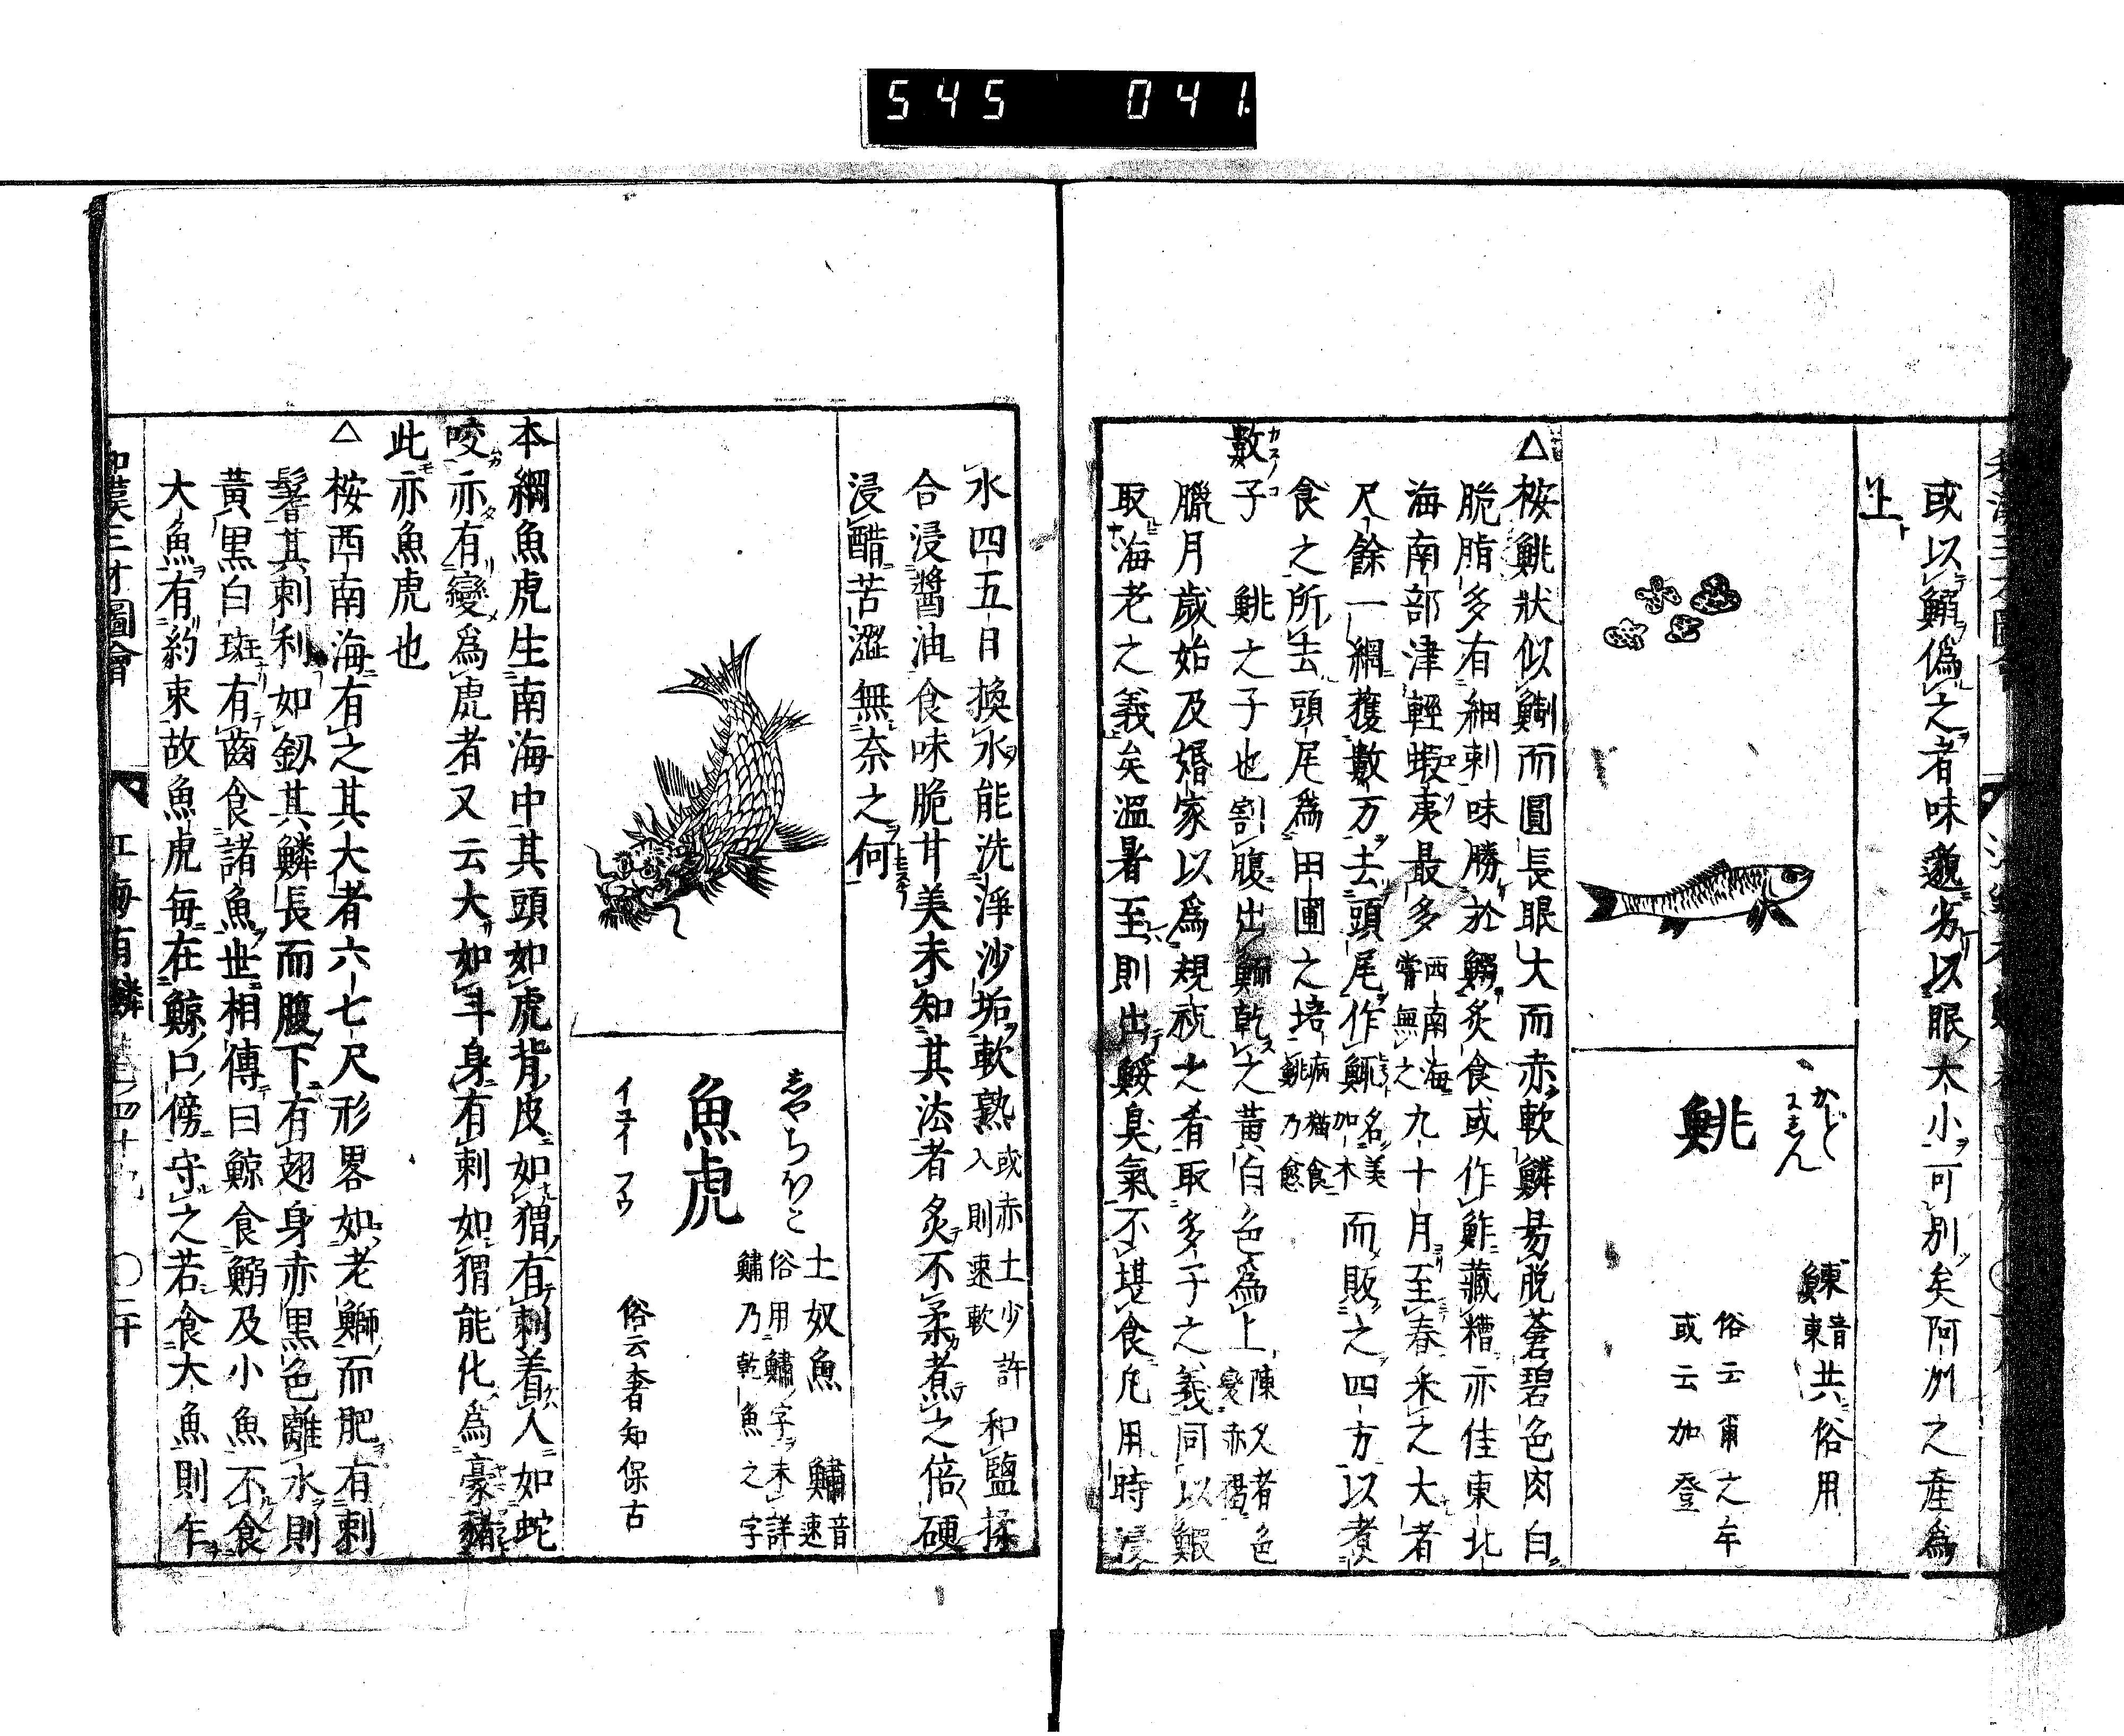 545 041
或以鰯偽之者味邈劣以眼大小可別矣阿州之産為
上
かど
にしん
鯡
鰊音東 共俗用
俗云甫之年
或云加登
△桉鯡狀似鰶而圓長眼大而赤軟鱗易脱蒼碧色肉白
脆脂多有細刺味勝於鰯炙食或作鮓藏糟亦佳東北
海南部津輕蝦夷最多西南海嘗無之九十月至春采之大者
尺餘一網獲數万去頭尾作鯡名美加木而販之四方以煑
食之所去頭尾為田圃之培病猫食鯡乃愈
數子 鯡之子也割腹出鯑乾之黄白色為上陳久者色變赤褐
臘月歳始及婚家以為規祝之肴取多子之義同以鰕
取海老之義矣温暑至則出鮾臭氣不堪食凢用時浸
水四五日換水能洗淨沙垢軟熟或赤土少許入則速軟和鹽揉
合浸醬油食味脆甘美未知其法者炙不柔煮之倍硬
浸醋苦澀無奈之何
しやちほこ
魚虎
イユイ フウ
土奴魚 鱐音速
俗用鱐字未詳
鱐乃乾魚之字
俗云奢知保古
本綱魚虎生南海中其頭如虎背皮如猬有刺着人如蛇
咬亦有變為虎者又云大如斗身有刺如猬能化為豪豬
此亦魚虎也
△桉西南海有之其大者六七尺形畧如老鰤而肥有刺
鬐其刺利如釼其鱗長而腹下有翅身赤黒色離水則
黃黒白斑有齒食諸魚世相傳曰鯨食鰯及小魚不食
大魚有約束故魚虎毎在鯨口傍守之若食大魚則乍
和漢三才圖會 江海有鱗 卷四十九 〇二十